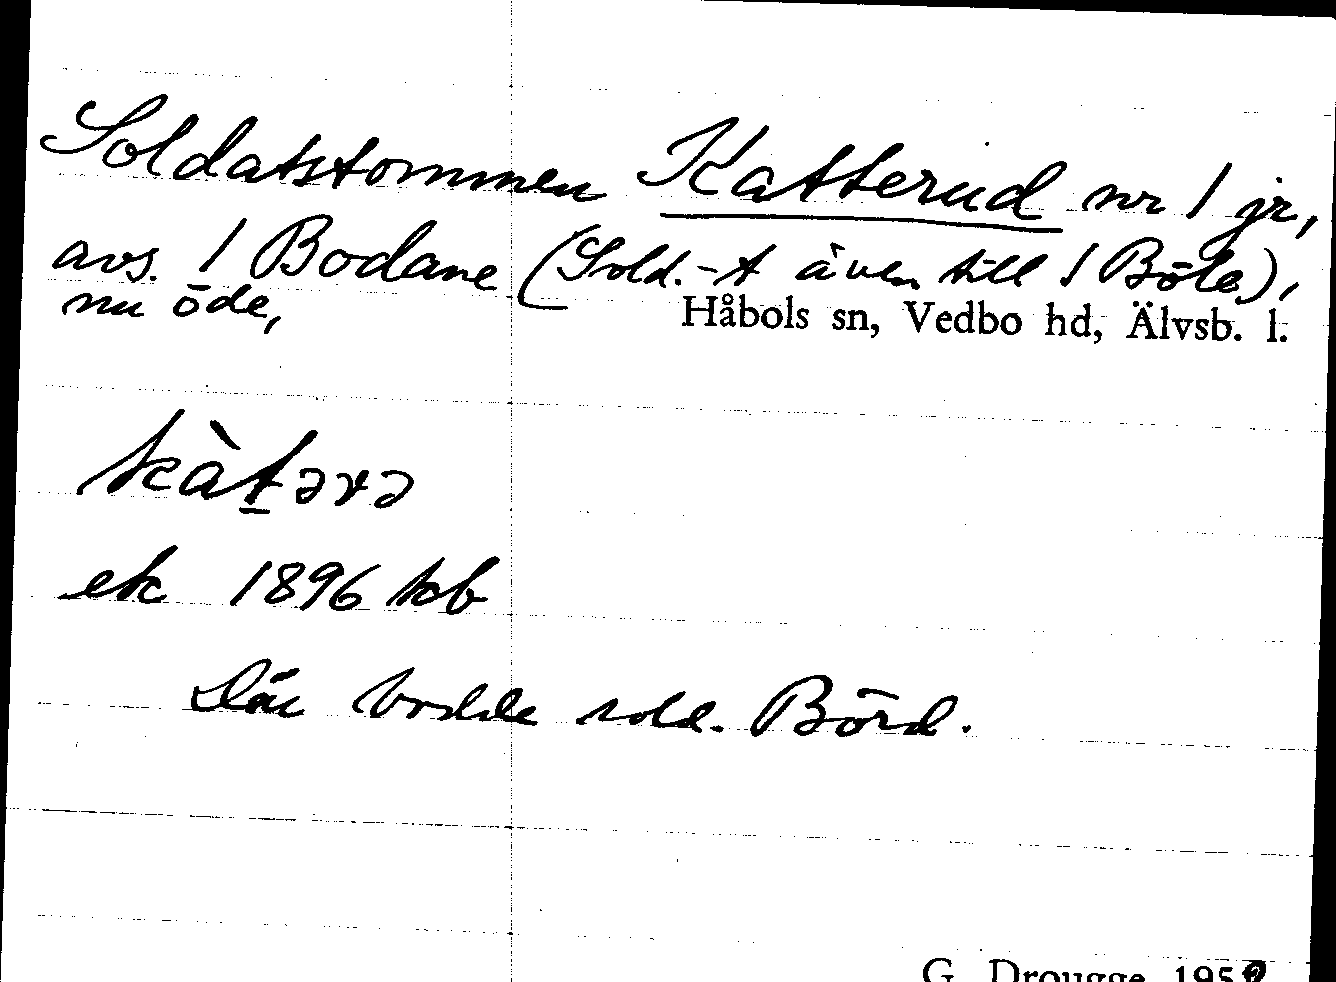 Soldatstommen Katterud nr 1 jr,
avs. 1 Bodane (Sold.-t även till 1 Böle),
nu öde,
Håbols sn, Vedbo hd, Älvsb. l.
kàt̲ərə
ek 1896 kb
Där bodde sold. Börd.
G. Drougge 195